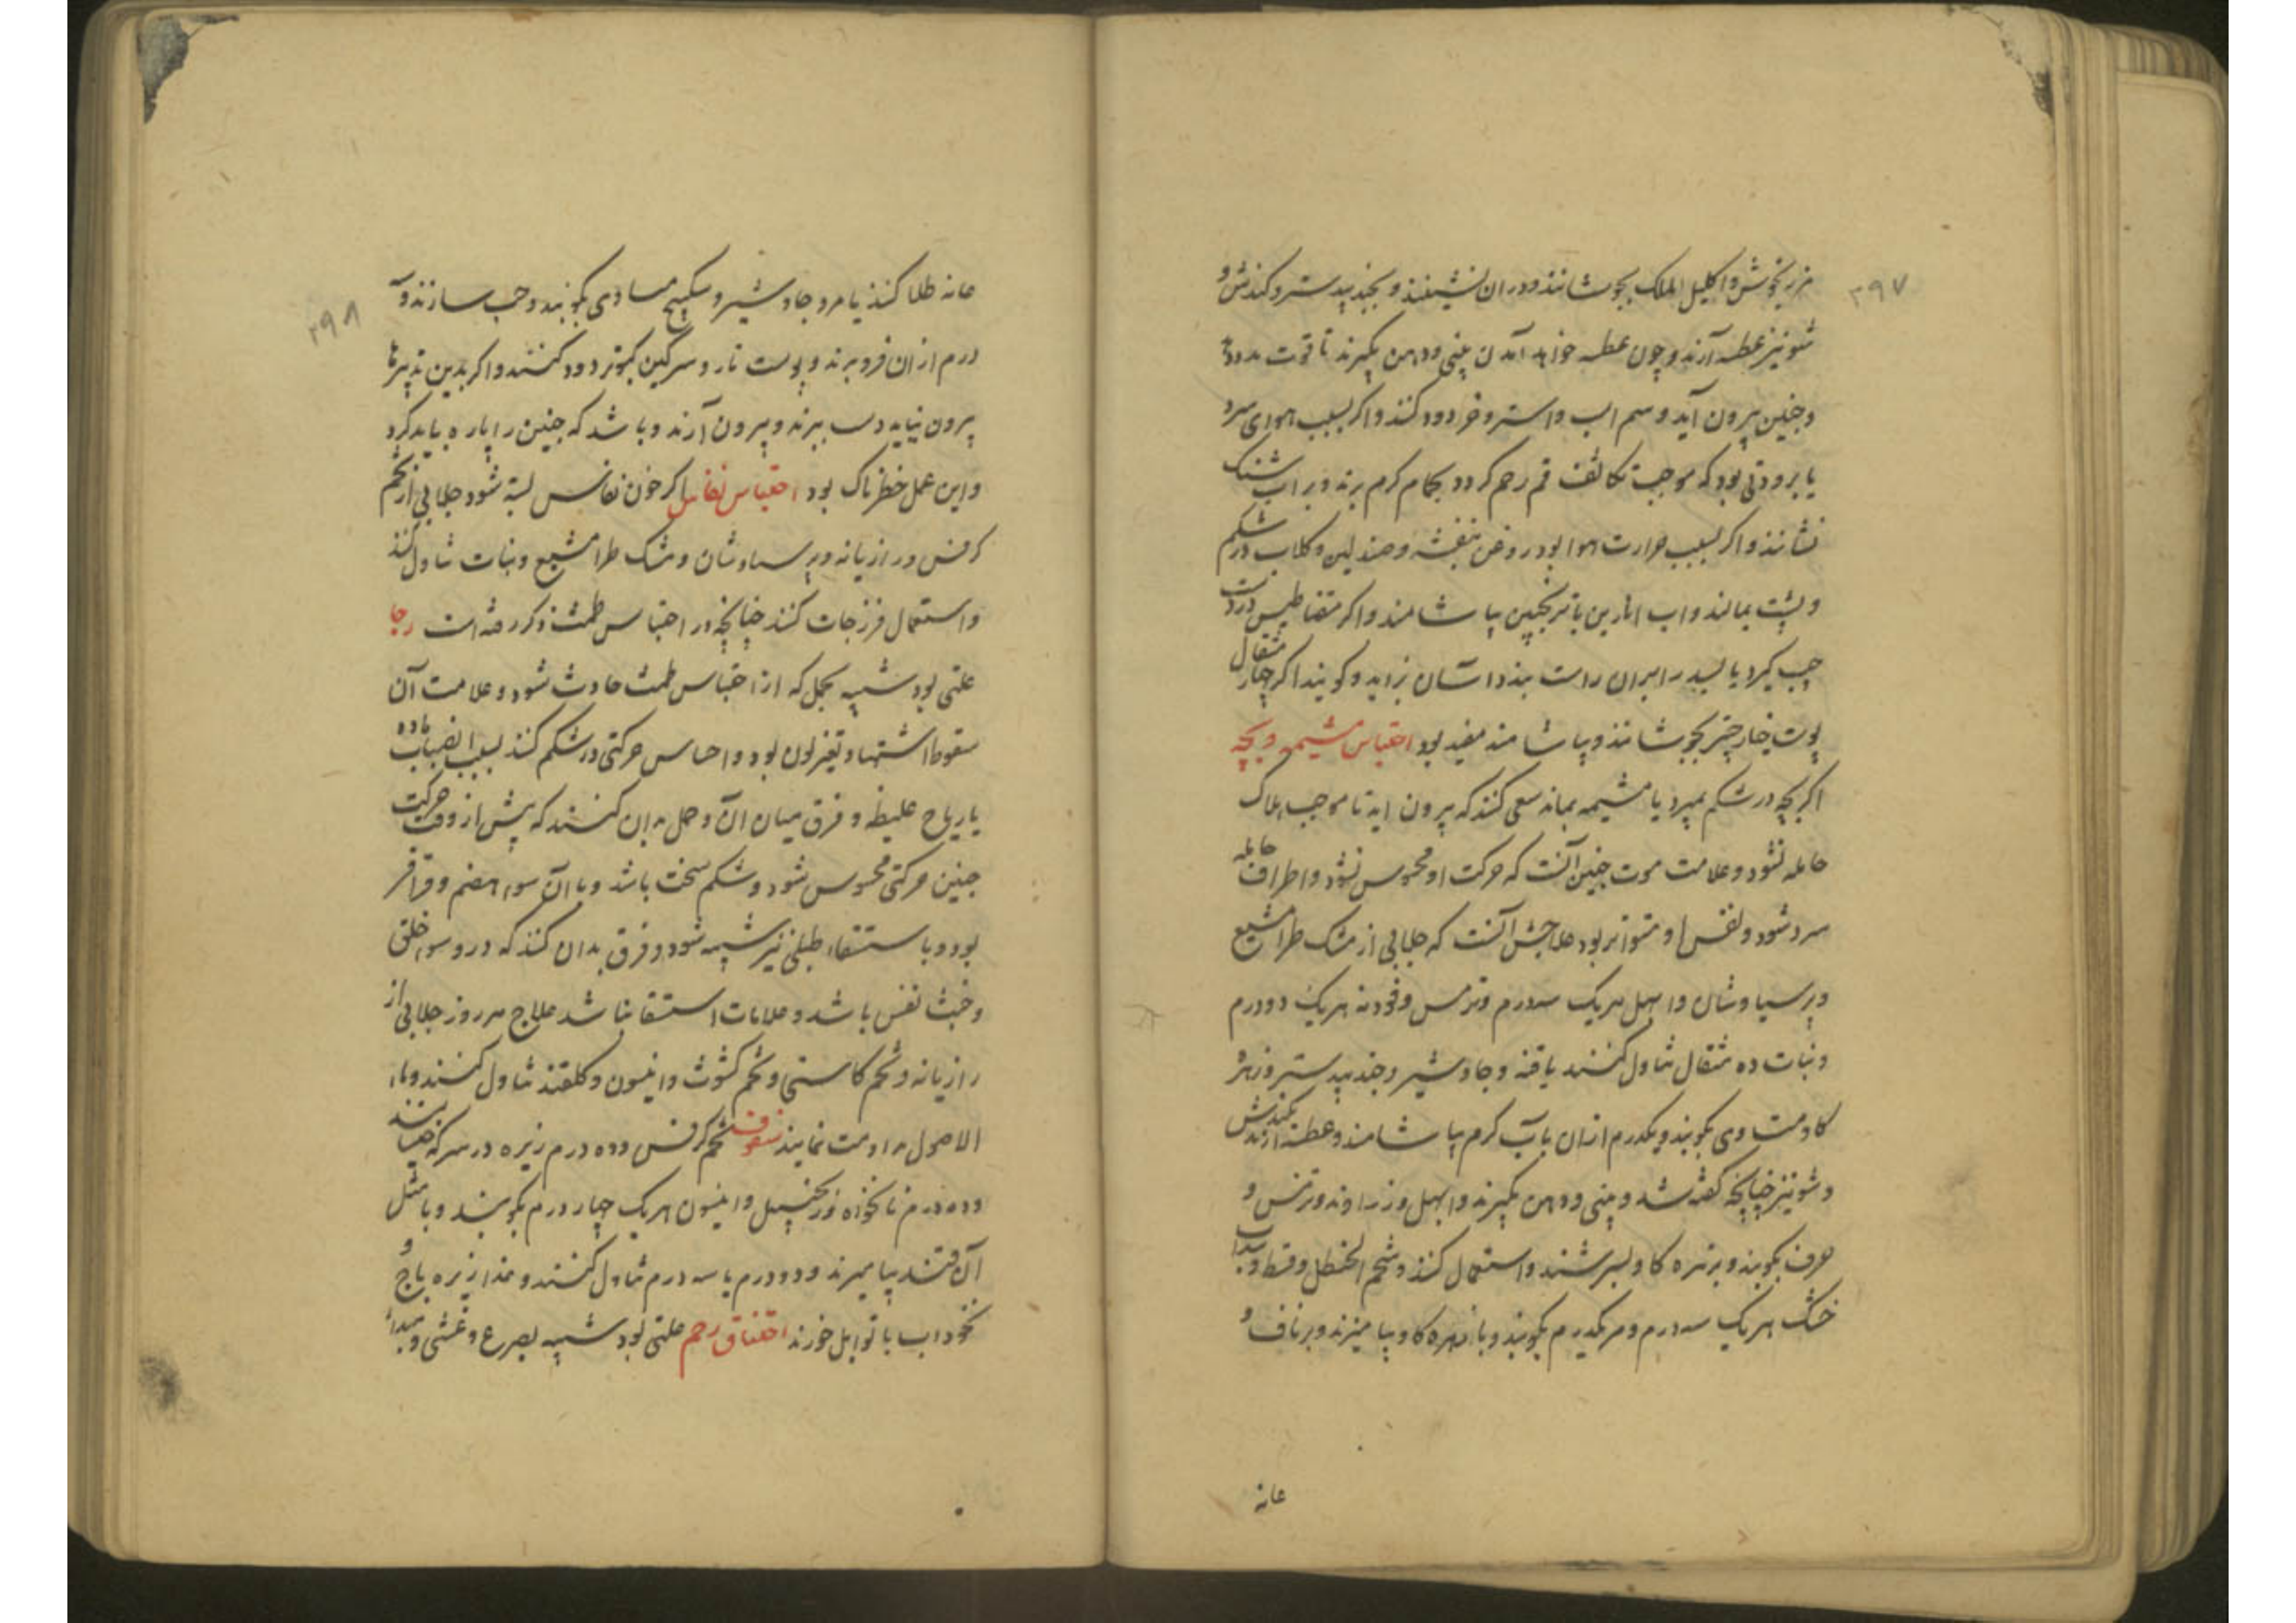 ۲۹۷
مرزنجوش و اکلیل الملک بجوشانند و در ان نشینند و بجند بیدستر و کندش و
شونیز عطسه آرند و چون عطسه خواهد آمدن بینی و دهن بگیرند تا قوت مدد
و جنین بیرون آید و سم اسب و استر و خر دود کنند و اگر بسبب هوای سرد
یا برودتی بود که موجب تکاثف فم رحم کردد بحمام کرم برند و بر اب
نشانند و اگر بسبب حرارت هوا بود روغن بنفشه و صندلین و کلاب در شکم
و پشت بمالند و اب انارین با ترنجبین بیاشامند و اگر مقناطیس در دست
چپ کیرد یا بسد را بران راست بندد اسان بزاید و کویند اگر چهار مثقال
پوست خیار چنبر بجوشانند و بیاشامند مفید بود احتباس مشیمه و بچه
اگر بچه در شکم بمیرد یا مشیمه بماند سعی کنند که بیرون اید تا موجب هلاک
حامله نشود و علامت موت جنین آنست که حرکت او محسوس نشود و اطراف حامله
سرد شود و نفس او متواتر بود علاجش آنست که جلابی از مشک طرامشیع
و پرسیاوشان و ابهل هریک سه درم و ترمس و فودنه هریک دو درم
و نبات ده مثقال تناول کنند یا قنه و جاوشیر و جند بیدستر و زهره
کاو متساوی بکوبند و یکدرم ازان باب کرم بیاشامند و عطسه ارند بکندش
و شونیز چنانچه کفته شد و بینی و دهن بگیرند و ابهل و زراوند و ترمس و
حرف بکوبند و بزهره کاو بسرشند و استعمال کنند و شحم الحنظل و قسط و سداب
خشک هریک سه درم و مر یکدرم بکوبند و با زهره کاو بیامیزند و بر ناف و
عانه
۲۹۸
عانه طلا کنند یا مر و جاوشیر و سکبینج مساوی بکوبند و حب سازند و
درم از ان فرو برند و پوست مار و سرکین کبوتر دود کنند و اگر بدین تدبیرها
بیرون نیاید دست ببرند و بیرون آرند و باشد که جنین را پاره باید کرد
و این عمل خطرناک بود احتباس نفاس اگر خون نفاس بسته شود جلابی از تخم
کرفس و رازیانه و پرسیاوشان و مشک طرامشیع و نبات تناول کنند
و استعمال فرزجات کنند چنانچه در احتباس طمث ذکر رفته است رجا
علتی بود شبیه بحمل که از احتباس طمث حادث شود و علامت آن
سقوط اشتها و تغیر لون بود و احساس حرکتی در شکم کنند بسبب انصباب ماده
یا ریاح غلیظه و فرق میان ان و حمل بدان کنند که پیش از وقت حرکت
جنین حرکتی محسوس شود و شکم سخت باشد و با ان سوء هضم و قراقر
بود و با استسقاء طبلی نیز شبیه شود و فرق بدان کنند که در و سوء خلق
و خبث نفس باشد و علامات استسقا نباشد علاج هر روز جلابی از
رازیانه و تخم کاسنی و تخم کشوث و انیسون و کلقند تناول کنند و ماء
الاصول مداومت نمایند سفوف تخم کرفس و ده درم زیره در سرکه
و ده درم نانخواه و زنجبیل و انیسون هریک چهار درم بکوبند و با مثل
آن قند بیامیزند و دو درم یا سه درم تناول کنند و غذا زیره باج و
نخوداب با توابل خورند اختناق رحم علتی بود شبیه بصرع و غشی و مبدا